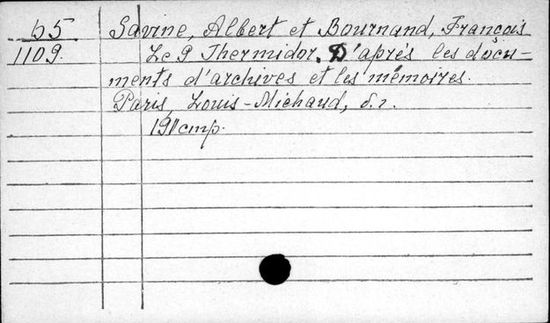 b5 Savine, Albert et Bournand, François
1109. Le 9 Thermidor. D'après les docu-
ments d'archives et les mémoires.
Paris, Louis-Michaud, s. r.
191 стр.